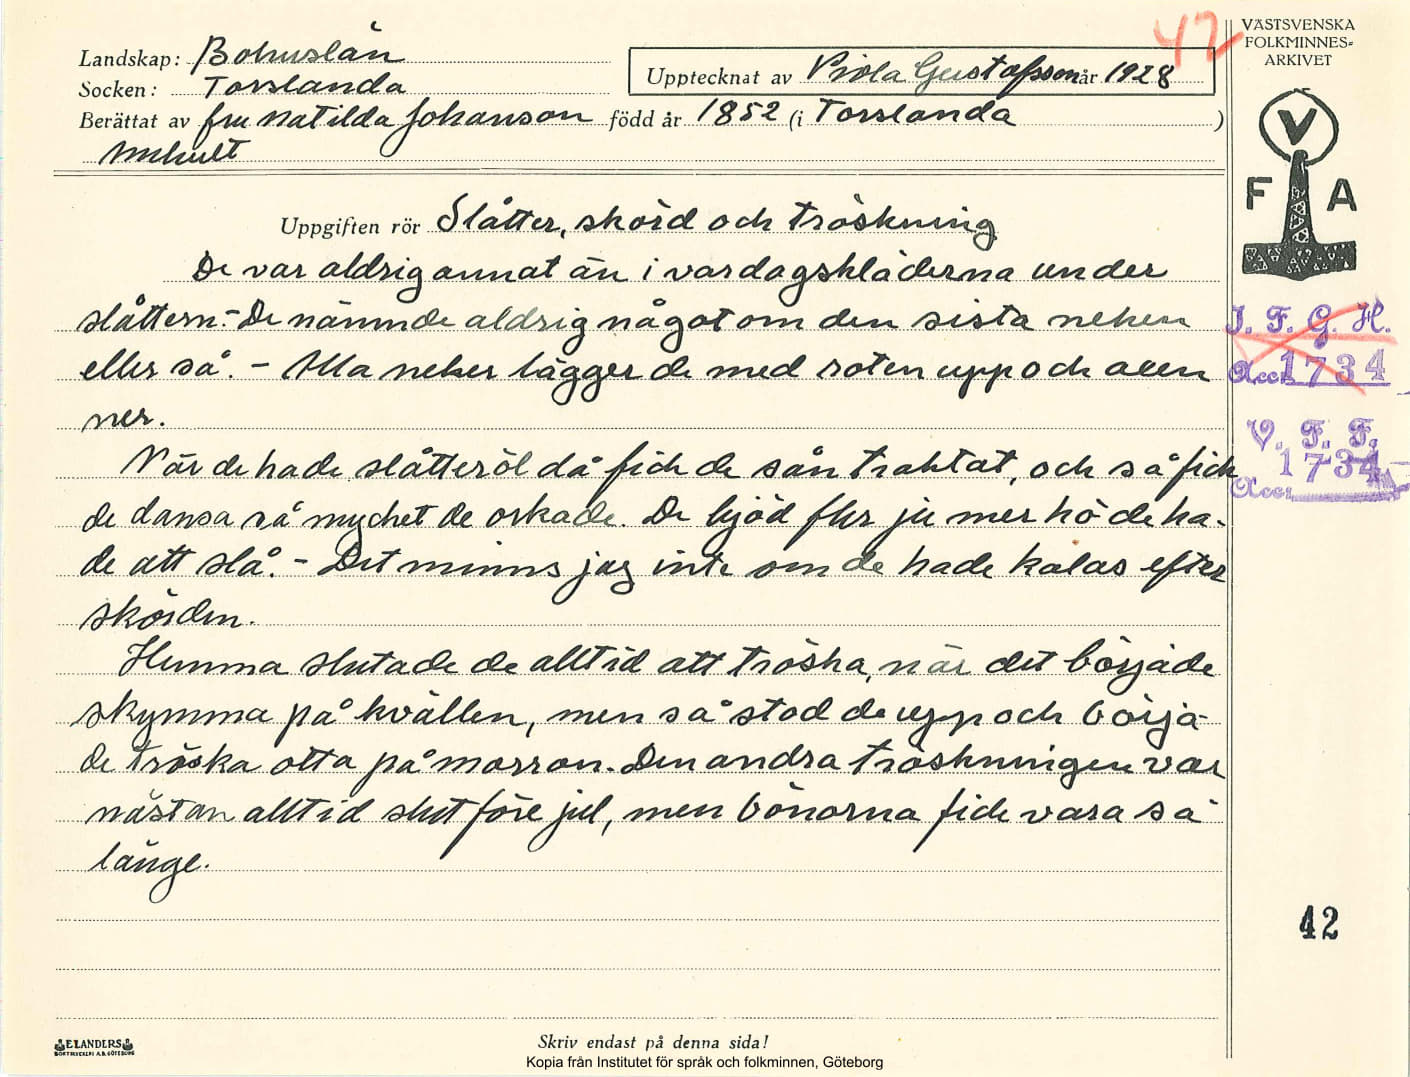 42
VÄSTSVENSKA
FOLKMINNES-
ARKIVET
Landskap: Bohuslän
Socken: Torslanda
Upptecknat av Viola Gustafsson år 1928
Berättat av fru Matilda Johanson född år 1852 (i Torslanda)
V
F A
Uppgiften rör Slåtter, skörd och tröskning
De var aldrig annat än i vardagskläderna under
slåttern.- De nämnde aldrig något om den sista neken
eller så. - Alla neker lägger de med roten upp och axen
ner.
När de hade slåtteröl då fick de sån traktat, och så fick
de dansa så mycket de orkade. De bjöd fler ju mer hö de ha-
de att slå. - Det minns jag inte om de hade kalas efter
skörden.
Hemma slutade de alltid att tröska, när det började
skymma på kvällen, men så stod de upp och börja-
de tröska otta på morron. Den andra tröskningen var
nästan alltid slut före jul, men bönorna fick vara så
länge.
I. F. G. H.
Acc: 1734
V. F. F.
Acc: 1734
42
ELANDERS
BOKTRYCKERI A.B. GÖTEBORG
Skriv endast på denna sida!
Kopia från Institutet för språk och folkminnen, Göteborg